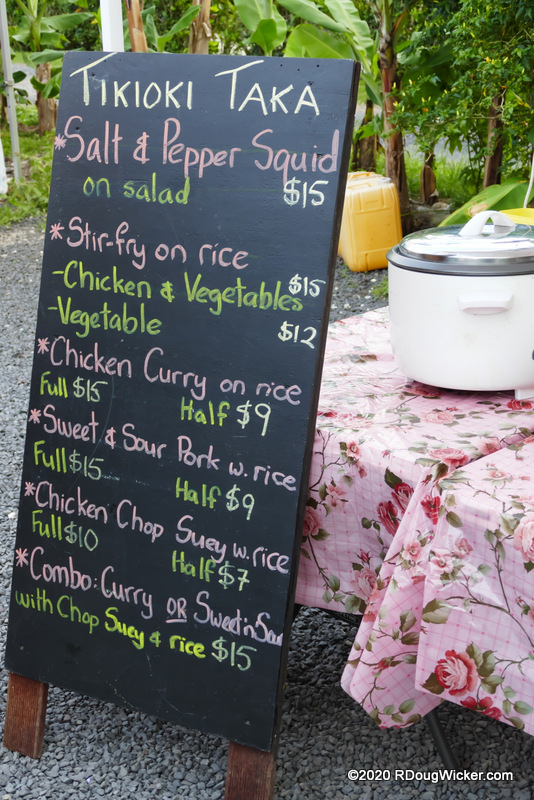 TIKIOKI TAKA
*Salt & Pepper Squid
on salad $15
*Stir-fry on rice
-Chicken & Vegetables $15
-Vegetable $12
*Chicken Curry on rice
Full $15 Half $9
*Sweet & Sour Pork w. rice
Full $15 Half $9
*Chicken Chop Suey w. rice
Full $10 Half $7
*Combo: Curry OR Sweet'n'Sour
with Chop Suey & rice $15
©2020 RDougWicker.com